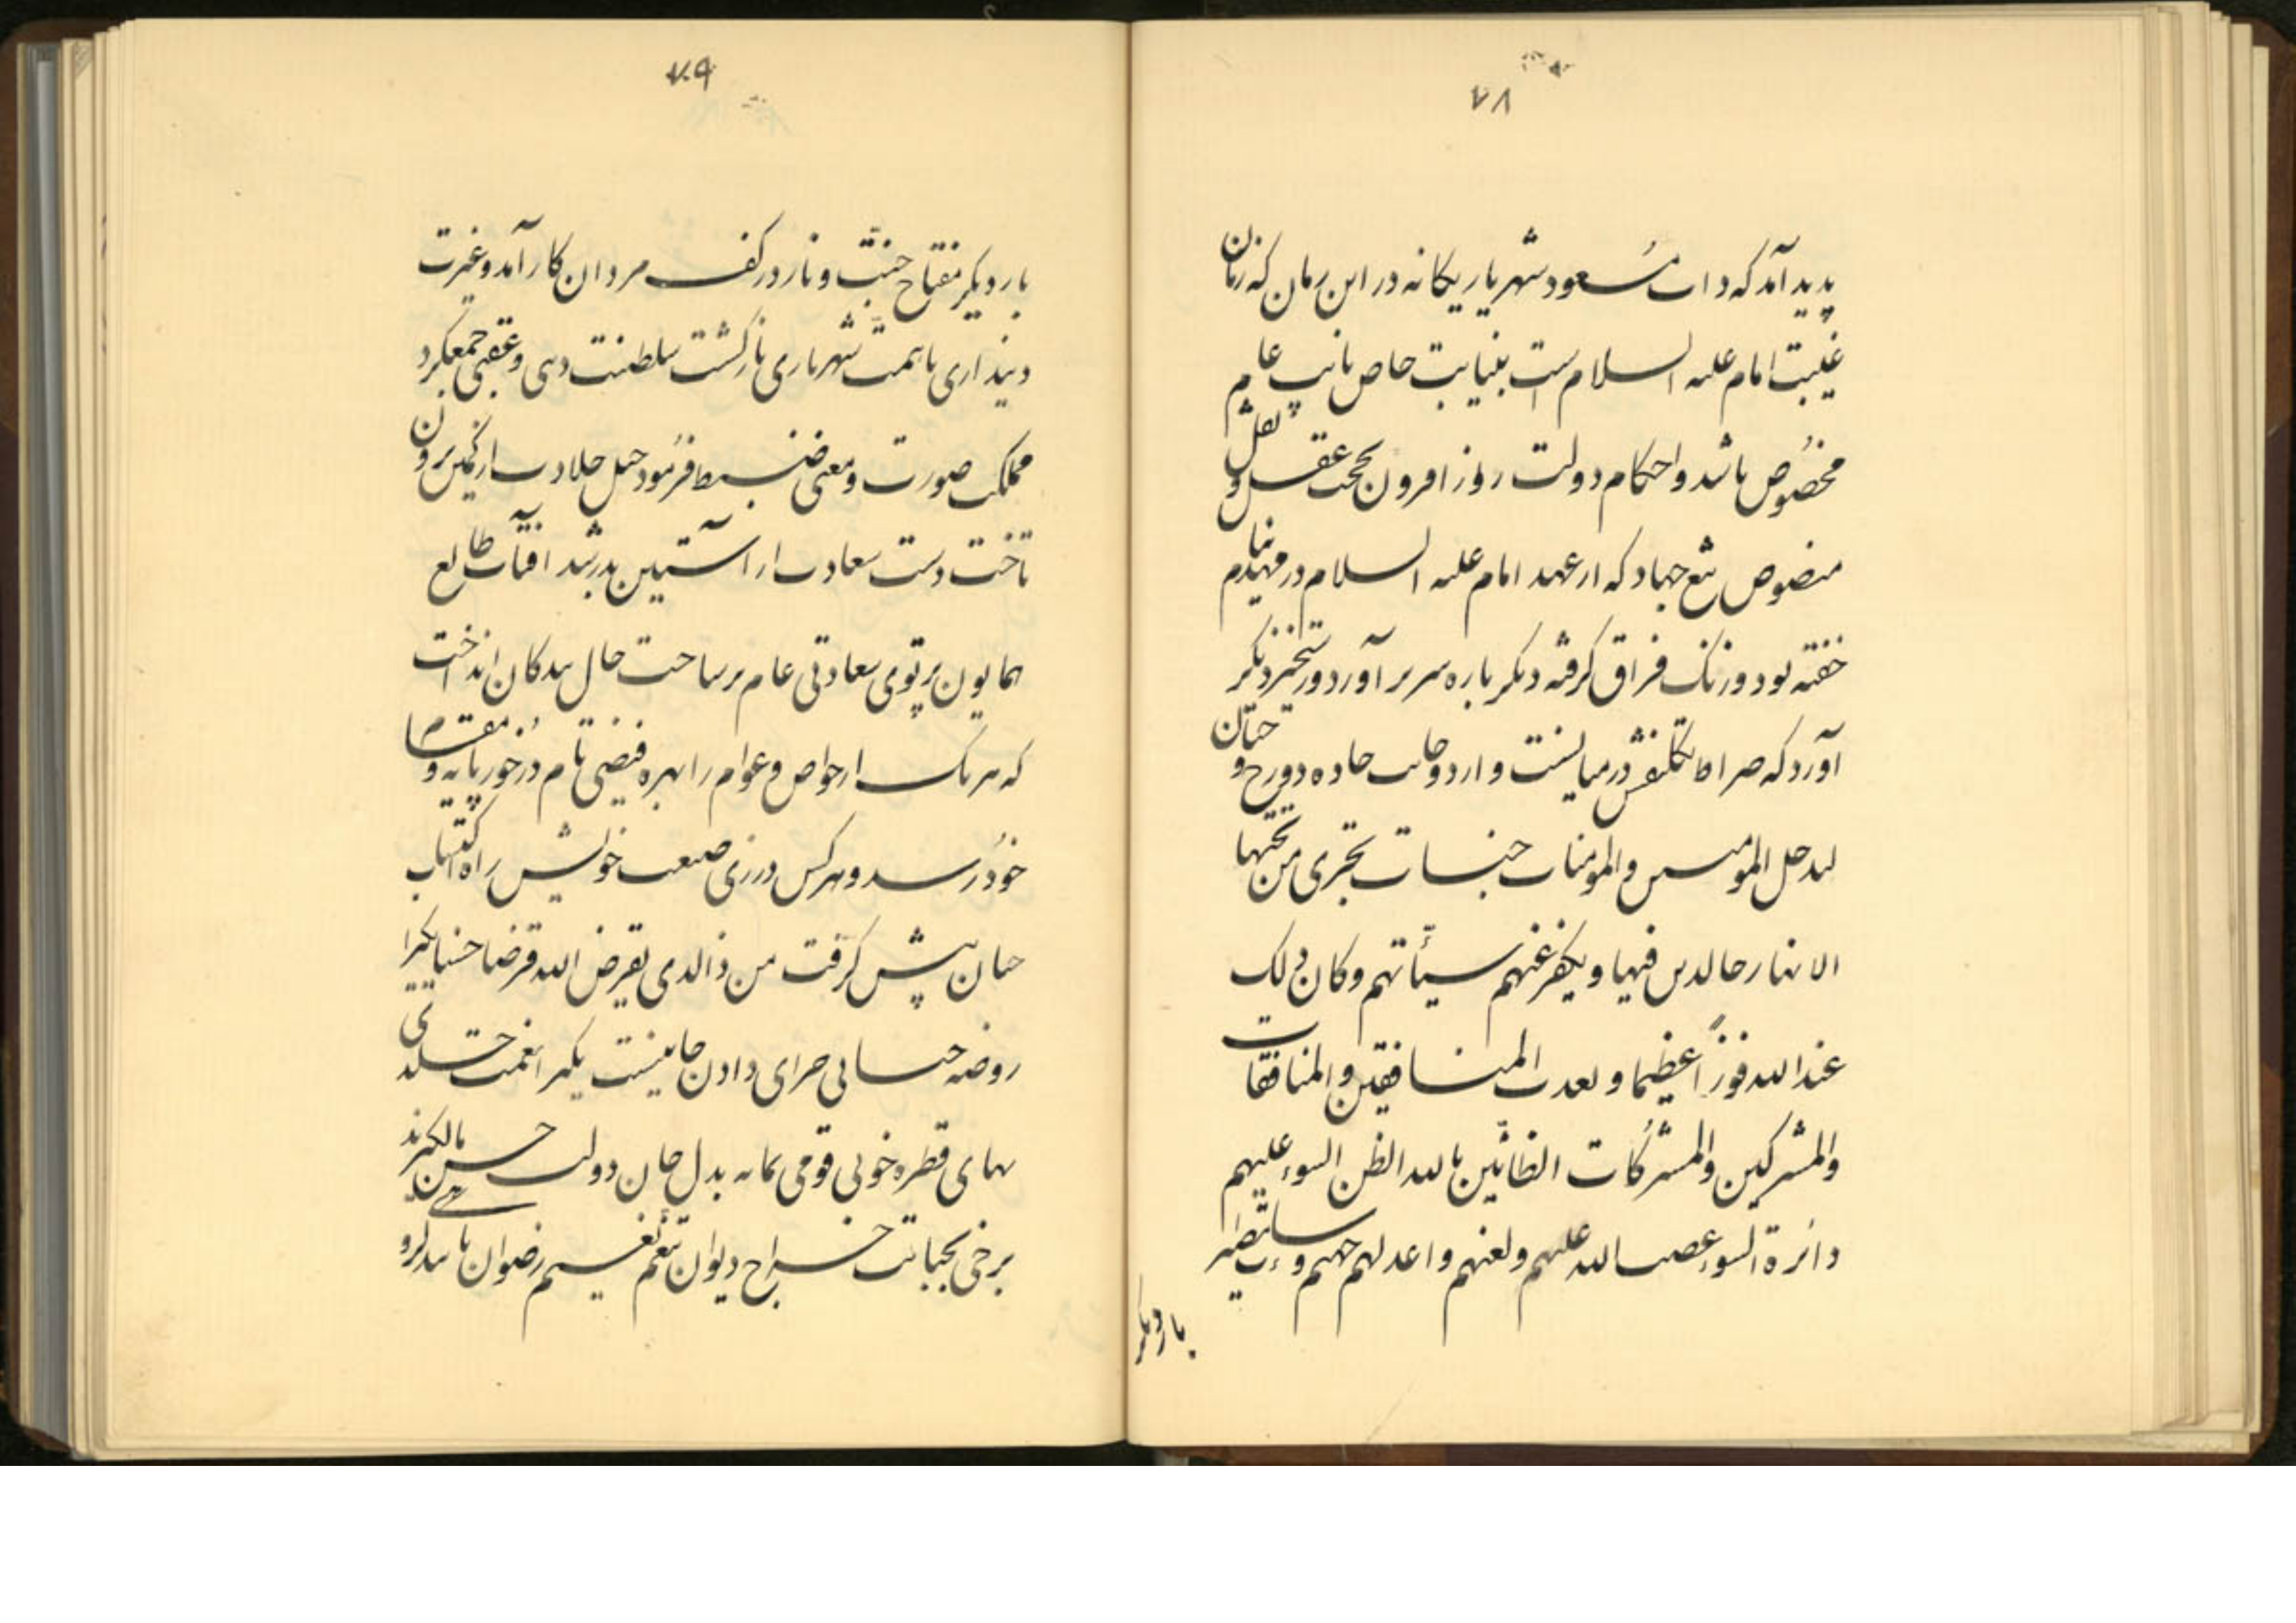 ۷۸
پدید آمد که ذات مسعود شهریار یگانه در این زمان که زمان
غیبت امام علیه السلام است بنیابت خاص نایب عام
مخصوص باشد و احکام دولت روز افزون بحجت عقل و نقل
منصوص تیغ جهاد که از عهد امام علیه السلام در مهد نیام
خفته بود و زنک فراق گرفته دیگر باره سر بر آورد و رستخیز دیگر
آورد که صراط تکلیفش در میانست و از دو جانب جاده دوزخ و جنان
لیدخل المومنین والمومنات جنات تجری من تحتها
الانهار خالدین فیها و یکفر عنهم سیّآتهم وکان ذلک
عند الله فوزاً عظیما و یعذب المنافقین والمنافقات
والمشرکین والمشرکات الظانّین بالله الظن السوء علیهم
دائرة السوء وغضب الله علیهم ولعنهم واعدلهم جهنم وساءت مصیر
بار دیگر
۷۰۹
بار دیگر مفتاح جنّت و نار در کف مردان کار آمد و غیرت
دینداری با همت شهریاری بازگشت سلطنت دنیی و عقبی جمع کرد
مملکت صورت و معنی ضبط فرمود خیل جلادت از کمین برون
تاخت دست سعادت از آستین بدر شد آفتاب طالع
همایون پرتوی سعادتی عام بر ساحت حال بندگان انداخت
که هر یک از خواص و عوام را بهره فیضی تام در خور پایه و مقام
خود رسد و هر کس در زی صنعت خویش راه اکتساب
جنان پیش گرفت من ذالذی یقرض الله قرضا حسنا یکبرا
روضه جنانی جزای دادن جانیست یکسر نعمت خلدی
بهای قطره خونی قومی بمایه بذل جان دولت حسن مآل گیرند
برخی بجبایت خراج دیوان تنعّم نعیم رضوان یابند گرو